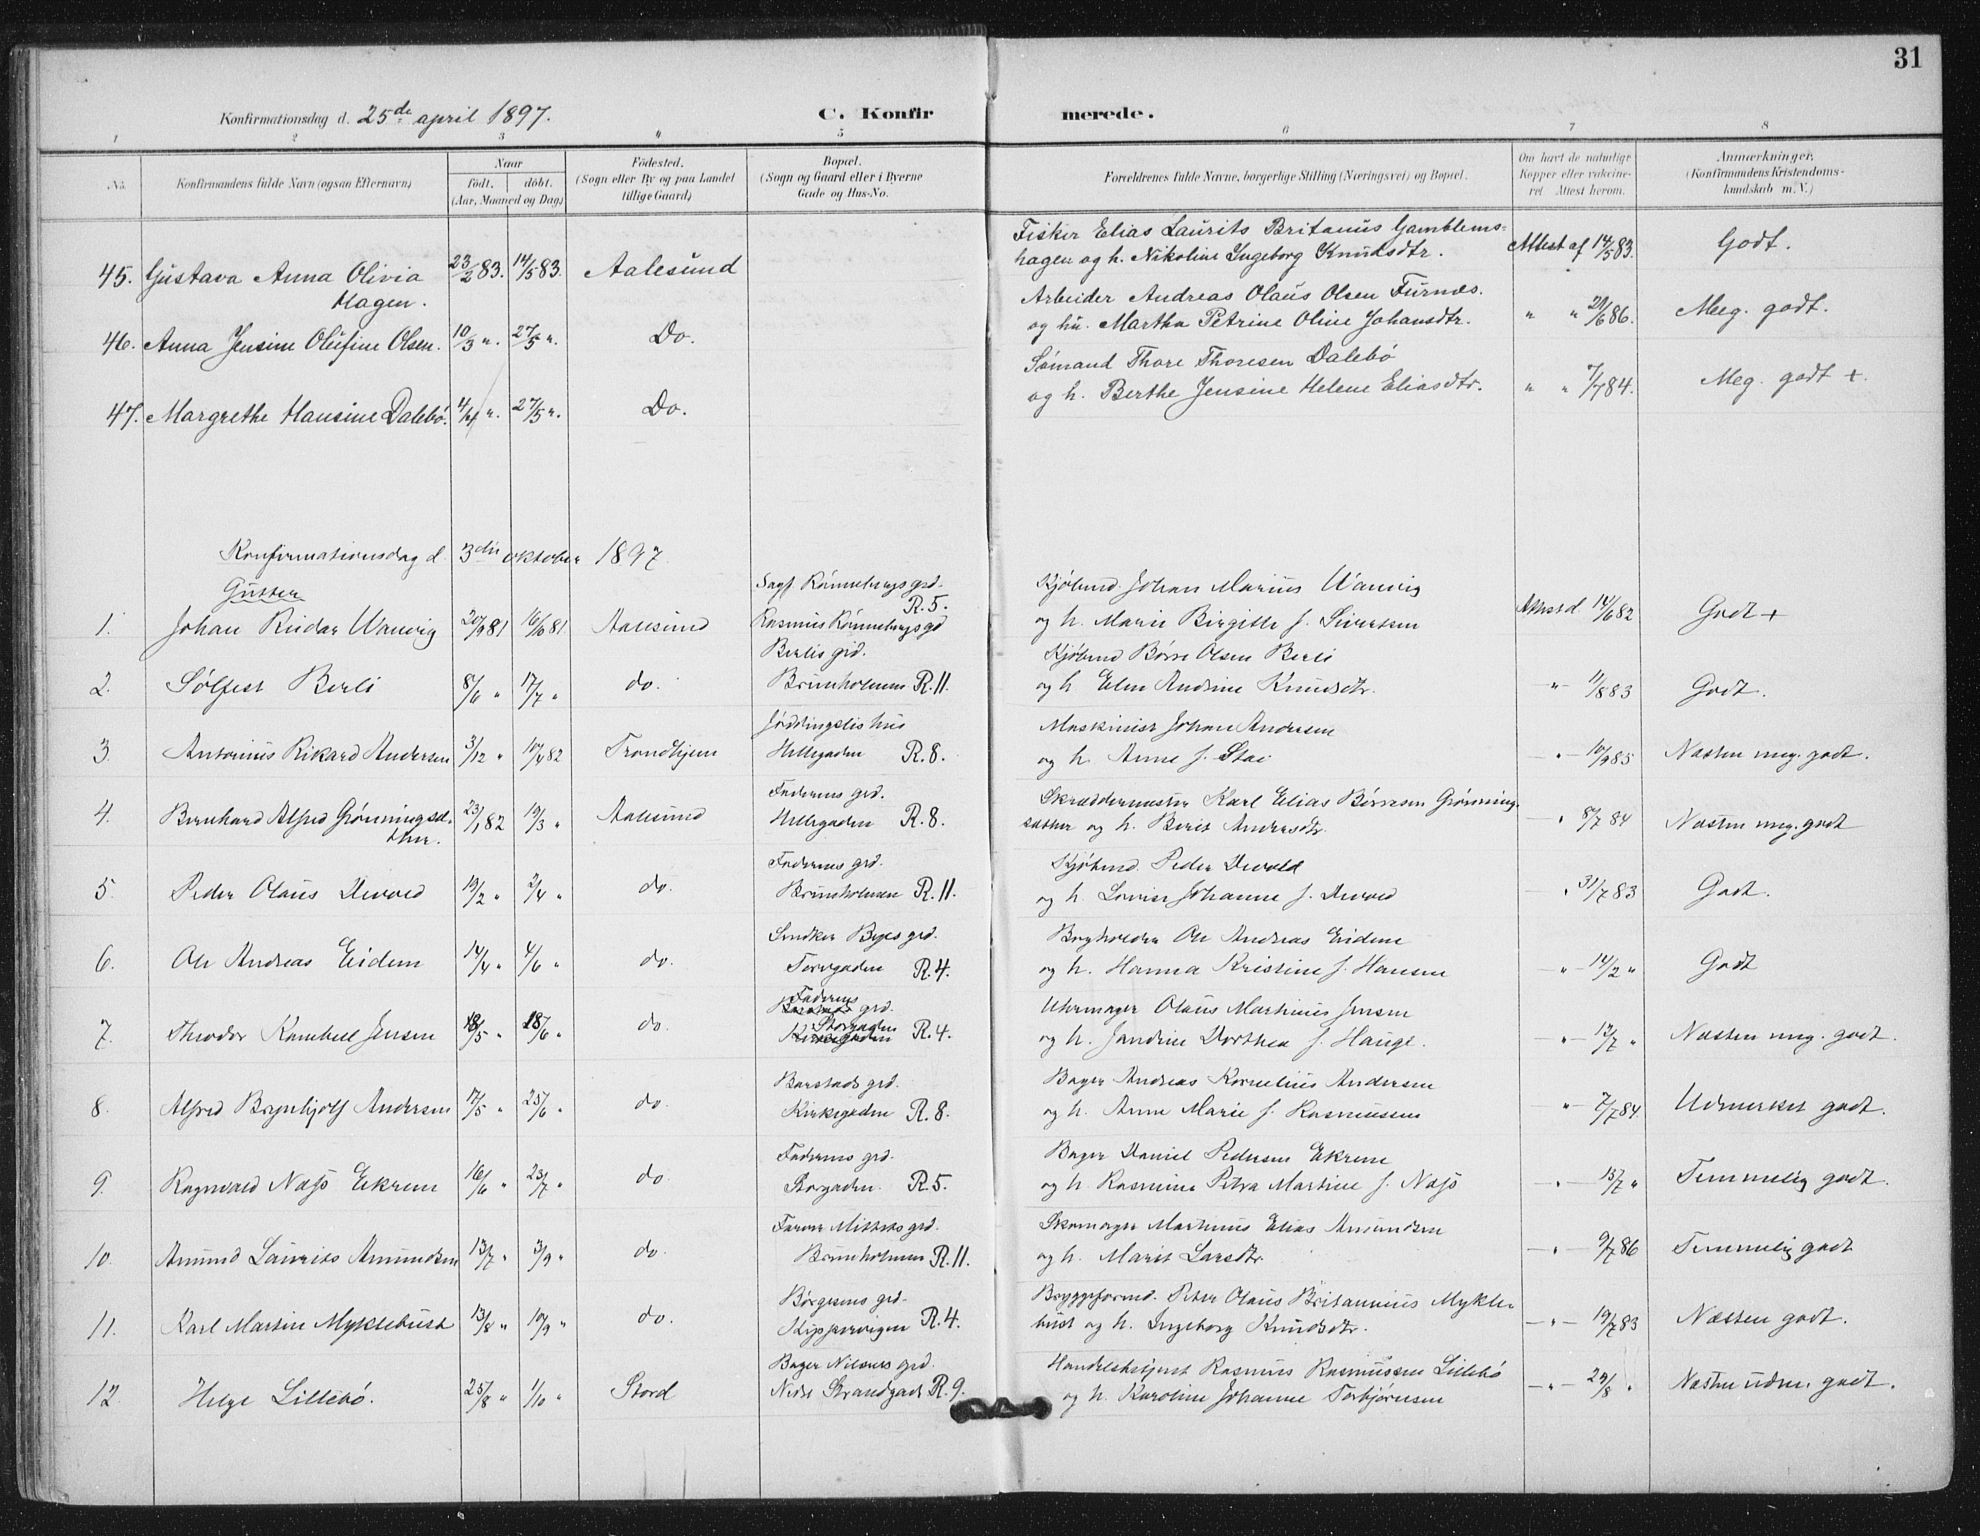 31
Konfirmationsdag d. 25de april 1897. C. Konfirmerede.
1 2 3 4 5 6 7 8
No. Konfirmandens fulde Navn (ogsaa Efternavn) Naar født. døbt. (Aar, Maaned og Dag) Fødested. (Sogn eller By og paa Landet tillige Gaard) Bopæl. (Sogn og Gaard eller i Byerne Gade og Hus-No. Forældrenes fulde Navne, borgerlige Stilling (Næringsvei) og Bopæl. Om havt de naturlige Kopper eller vakcineret. Attest herom. Anmærkninger. (Konfirmandens Kristendomskundskab m. V.)
Fisker Elias Laurits Britanus Gamblems-
45. Gustava Anna Olivia 23/2 83. 14/5 83. Aalesund hagen og h. Nikoline Ingeborg Knudsdtr. Attest af 14/5 83. Godt.
Hagen.
Arbeider Andreas Olaus Olsen Furnes.
46. Anna Jensine Olufine Olsen. 10/3 ". 27/5 ". Do. og hu. Martha Petrine Oline Johansdtr. " " 21/6 86. Meg. godt.
Sømand Thore Thoresen Dalebø
47. Margrethe Hansine Dalebø. 4/4 ". 27/5 ". Do. og h. Berthe Jensine Helene Eliasdtr. " " 7/7 84. Meg. godt +.
Konfirmationsdag d. 3die oktober 1897
Gutter
Sagf. Rønnebergs grd. R. 5. Kjøbmd. Johan Marius Wannvig
1. Johan Reidar Wannvig 20/9 81 16/10 81 Aalesund Rasmus Rønnebergs gd og h. Marie Birgitte f. Sivertsen Attest d. 14/6 82 Godt +
Berlis grd. Kjøbmd Børre Olsen Berli
2. Sølfest Berli 8/6 " 17/7 " do. Brunholmen R. 11. og h Elen Andrine Knudsdtr. " 11/8 83 Godt.
hus Maskinist Johan Andersen
3. Antonius Rikard Andersen 3/12 " 10/4 82 Trondhjem Hellegaden R. 8. og h. Anne f. Stai " 10/9 85 Næsten meg. godt.
Faderens grd. Skræddermester Karl Elias Børresen Grønning-
4. Bernhard Alfred Grønningsæ- 23/1 82 19/3 " Aalesund Hellegaden R. 8. sæther og h. Berit Andersdtr. " 8/7 84 Næsten meg. godt
ther.
Faderens grd. Kjøbmd. Peder Devold
5 Peder Olaus Devold 19/2 " 2/4 " do. Brunholmen R. 11. og h. Lovise Johanne f. Devold " 31/7 83 Godt.
Snedker Byes grd. Bogholder Ole Andreas Eidem
6. Ole Andreas Eidem 14/4 " 4/6 " do. Torvgaden R. 4. og h. Hanna Kristine f. Hansen " 14/2 " Godt
Faderens grd. Uhrmager Olaus Martinus Jensen
7. Theodor Kambell Jensen 18/5 " 18/6 " do. Storgaden R. 4. og h. Jandine Dorthea f. Hauge. " 12/7 " Næsten meg. godt.
Barstads grd. Bager Andreas Kornelius Andersen
8. Alfred Brynhjolf Andersen 17/5 " 25/6 " do. Kirkegaden R. 8. og h. Anne Marie f. Rasmussen " 7/7 84. Udmerket godt.
Faderens grd. Bager Daniel Pedersen Ekrem
9. Ragnvald Nasjø Ekrem 16/6 " 23/7 " do Storgaden. R. 5. og h. Rasmine Petra Martine f. Nasjø " 13/7 " Temmelig godt.
grd. Skomager Martinus Elias Amundsen
10. Amund Laurits Amundsen 13/7 " 3/9 " do. Brunholmen R. 11. og h. Marit Larsdtr. " 9/7 86 Temmelig godt
Børgesens grd. Bryggeformd. Peter Olaus Britannius Mykle-
11. Karl Martin Myklebust 13/8 " 10/9 " do. Kippervigen R. 4. bust og h. Ingeborg Knudsdtr. " 19/7 83 Næsten godt.
Bager Nilsens grd. Handelsbetjent Rasmus Rasmussen Lillebø
12. Helge Lillebø. 25/8 " 1/10 " Stord Nedre Strandgade R. 9. og h. Karoline Johanne Torbjørnsen " 24/8 " Næsten udm. godt.